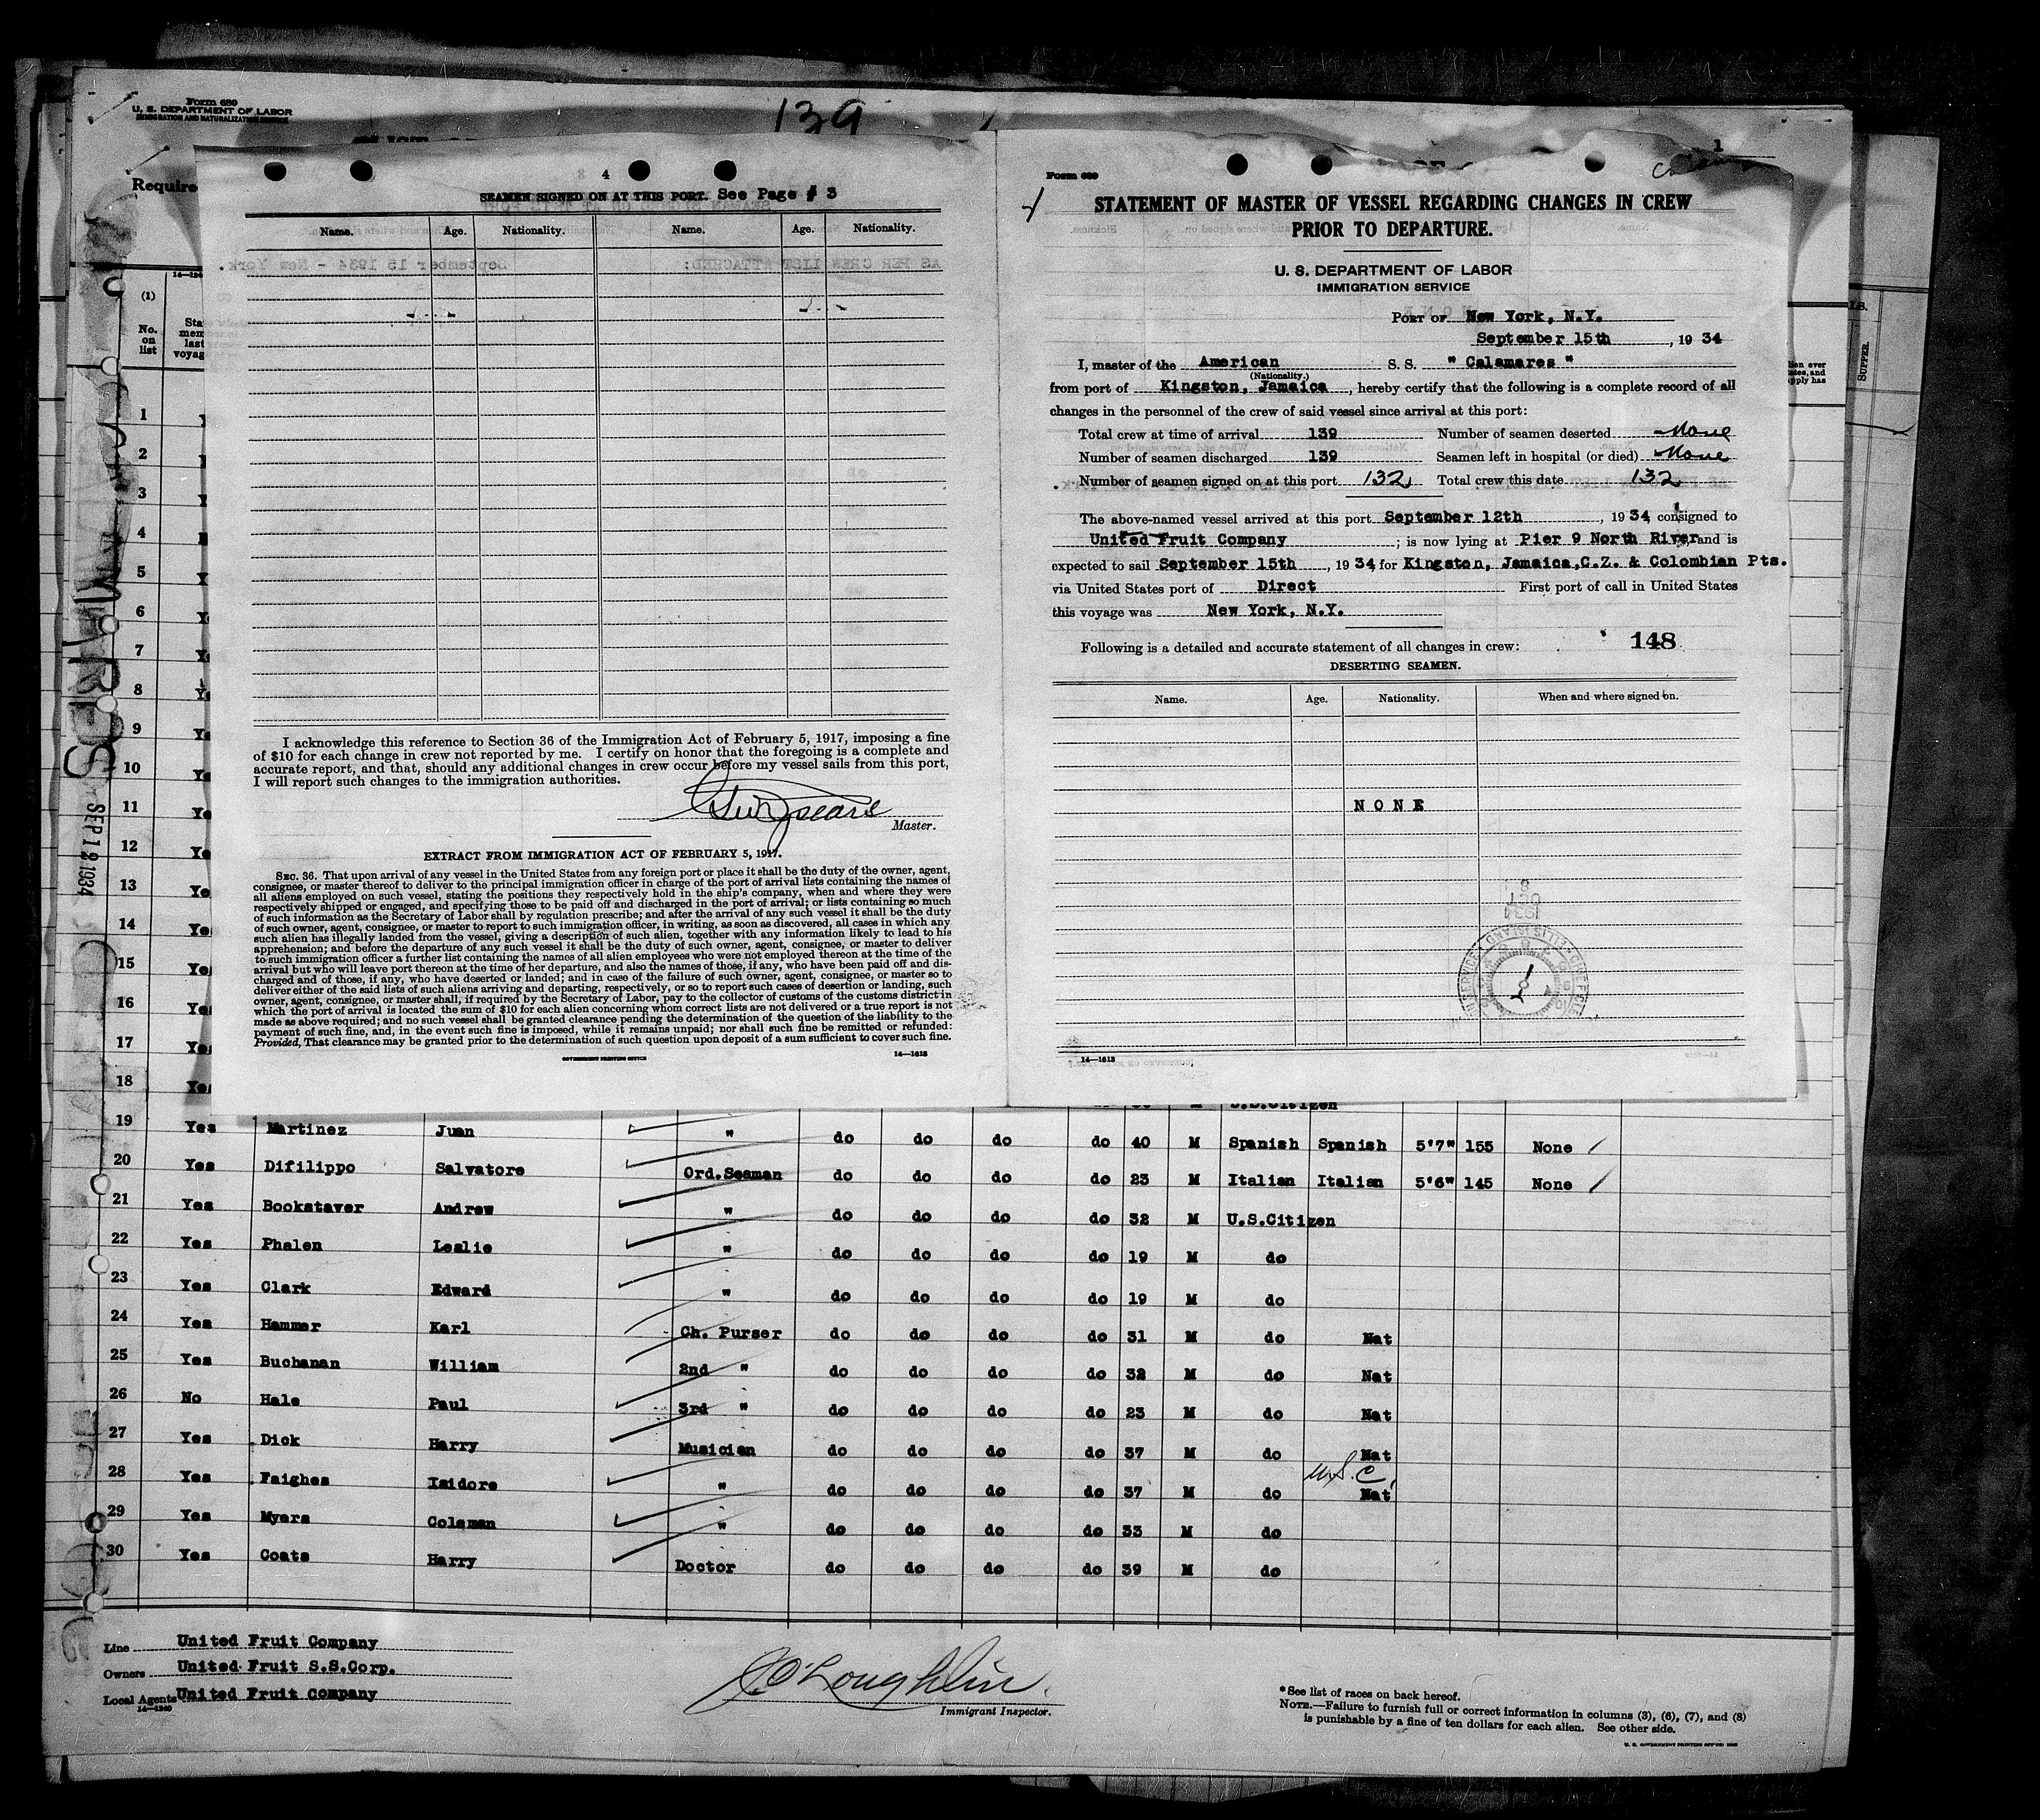 Form 680
U. S. DEPARTMENT OF LABOR
IMMIGRATION AND NATURALIZATION SERVICE
139
Require
(1)
No. on list
1
2
3
4
5
6
7
8
9
10
11
12
13
14
15
16
17
18
SEP 12 1934
4
SEAMEN SIGNED ON AT THIS PORT. See Page # 3
Name. Age. Nationality. Name. Age. Nationality.
I acknowledge this reference to Section 36 of the Immigration Act of February 5, 1917, imposing a fine
of $10 for each change in crew not reported by me. I certify on honor that the foregoing is a complete and
accurate report, and that, should any additional changes in crew occur before my vessel sails from this port,
I will report such changes to the immigration authorities.
Master.
EXTRACT FROM IMMIGRATION ACT OF FEBRUARY 5, 1917.
SEC. 36. That upon arrival of any vessel in the United States from any foreign port or place it shall be the duty of the owner, agent,
consignee, or master thereof to deliver to the principal immigration officer in charge of the port of arrival lists containing the names of
all aliens employed on such vessel, stating the positions they respectively hold in the ship's company, when and where they were
respectively shipped or engaged, and specifying those to be paid off and discharged in the port of arrival; or lists containing so much
of such information as the Secretary of Labor shall by regulation prescribe; and after the arrival of any such vessel it shall be the duty
of such owner, agent, consignee, or master to report to such immigration officer, in writing, as soon as discovered, all cases in which any
such alien has illegally landed from the vessel, giving a description of such alien, together with any information likely to lead to his
apprehension; and before the departure of any such vessel it shall be the duty of such owner, agent, consignee, or master to deliver
to such immigration officer a further list containing the names of all alien employees who were not employed thereon at the time of the
arrival but who will leave port thereon at the time of her departure, and also the names of those, if any, who have been paid off and dis-
charged and of those, if any, who have deserted or landed; and in case of the failure of such owner, agent, consignee, or master so to
deliver either of the said lists of such aliens arriving and departing, respectively, or so to report such cases of desertion or landing, such
owner, agent, consignee, or master shall, if required by the Secretary of Labor, pay to the collector of customs of the customs district in
which the port of arrival is located the sum of $10 for each alien concerning whom correct lists are not delivered or a true report is not
made as above required; and no such vessel shall be granted clearance pending the determination of the question of the liability to the
payment of such fine, and, in the event such fine is imposed, while it remains unpaid; nor shall such fine be remitted or refunded:
Provided, That clearance may be granted prior to the determination of such question upon deposit of a sum sufficient to cover such fine.
GOVERNMENT PRINTING OFFICE 14—1613
1
Form 689
STATEMENT OF MASTER OF VESSEL REGARDING CHANGES IN CREW
PRIOR TO DEPARTURE.
U. S. DEPARTMENT OF LABOR
IMMIGRATION SERVICE
PORT OF New York, N.Y.
September 15th, 1934
I, master of the American S. S. "Calamares"
(Nationality.)
from port of Kingston, Jamaica, hereby certify that the following is a complete record of all
changes in the personnel of the crew of said vessel since arrival at this port:
Total crew at time of arrival 139 Number of seamen deserted None
Number of seamen discharged 139 Seamen left in hospital (or died) None
Number of seamen signed on at this port 132 Total crew this date 132
The above-named vessel arrived at this port September 12th, 1934, consigned to
United Fruit Company; is now lying at Pier 9 North River and is
expected to sail September 15th, 1934, for Kingston, Jamaica, C.Z. & Colombian Pts.
via United States port of Direct First port of call in United States
this voyage was New York, N.Y.
Following is a detailed and accurate statement of all changes in crew: 148
DESERTING SEAMEN.
Name. Age. Nationality. When and where signed on.
NONE
14—1613
U.S.Citizen
19 Yes Martinez Juan " do do do do 40 M Spanish Spanish 5'7" 155 None
20 Yes Difilippo Salvatore Ord.Seaman do do do do 23 M Italian Italian 5'6" 145 None
21 Yes Bookstaver Andrew " do do do do 32 M U.S.Citizen
22 Yes Phalen Leslie " do do do do 19 M do
23 Yes Clark Edward " do do do do 19 M do
24 Yes Hammer Karl Ch. Purser do do do do 31 M do Nat
25 Yes Buchanan William 2nd " do do do do 32 M do Nat
26 No Hale Paul 3rd " do do do do 23 M do Nat
27 Yes Dick Harry Musician do do do do 37 M do Nat
28 Yes Faighes Isidore " do do do do 37 M do U.S.C. Nat
29 Yes Myers Coleman " do do do do 33 M do
30 Yes Coats Harry Doctor do do do do 39 M do
Line United Fruit Company
Owners United Fruit S.S.Corp.
Local Agents United Fruit Company
14—1240
J. O'Loughlin.
Immigrant Inspector.
*See list of races on back hereof.
NOTE.—Failure to furnish full or correct information in columns (3), (6), (7), and (8)
is punishable by a fine of ten dollars for each alien. See other side.